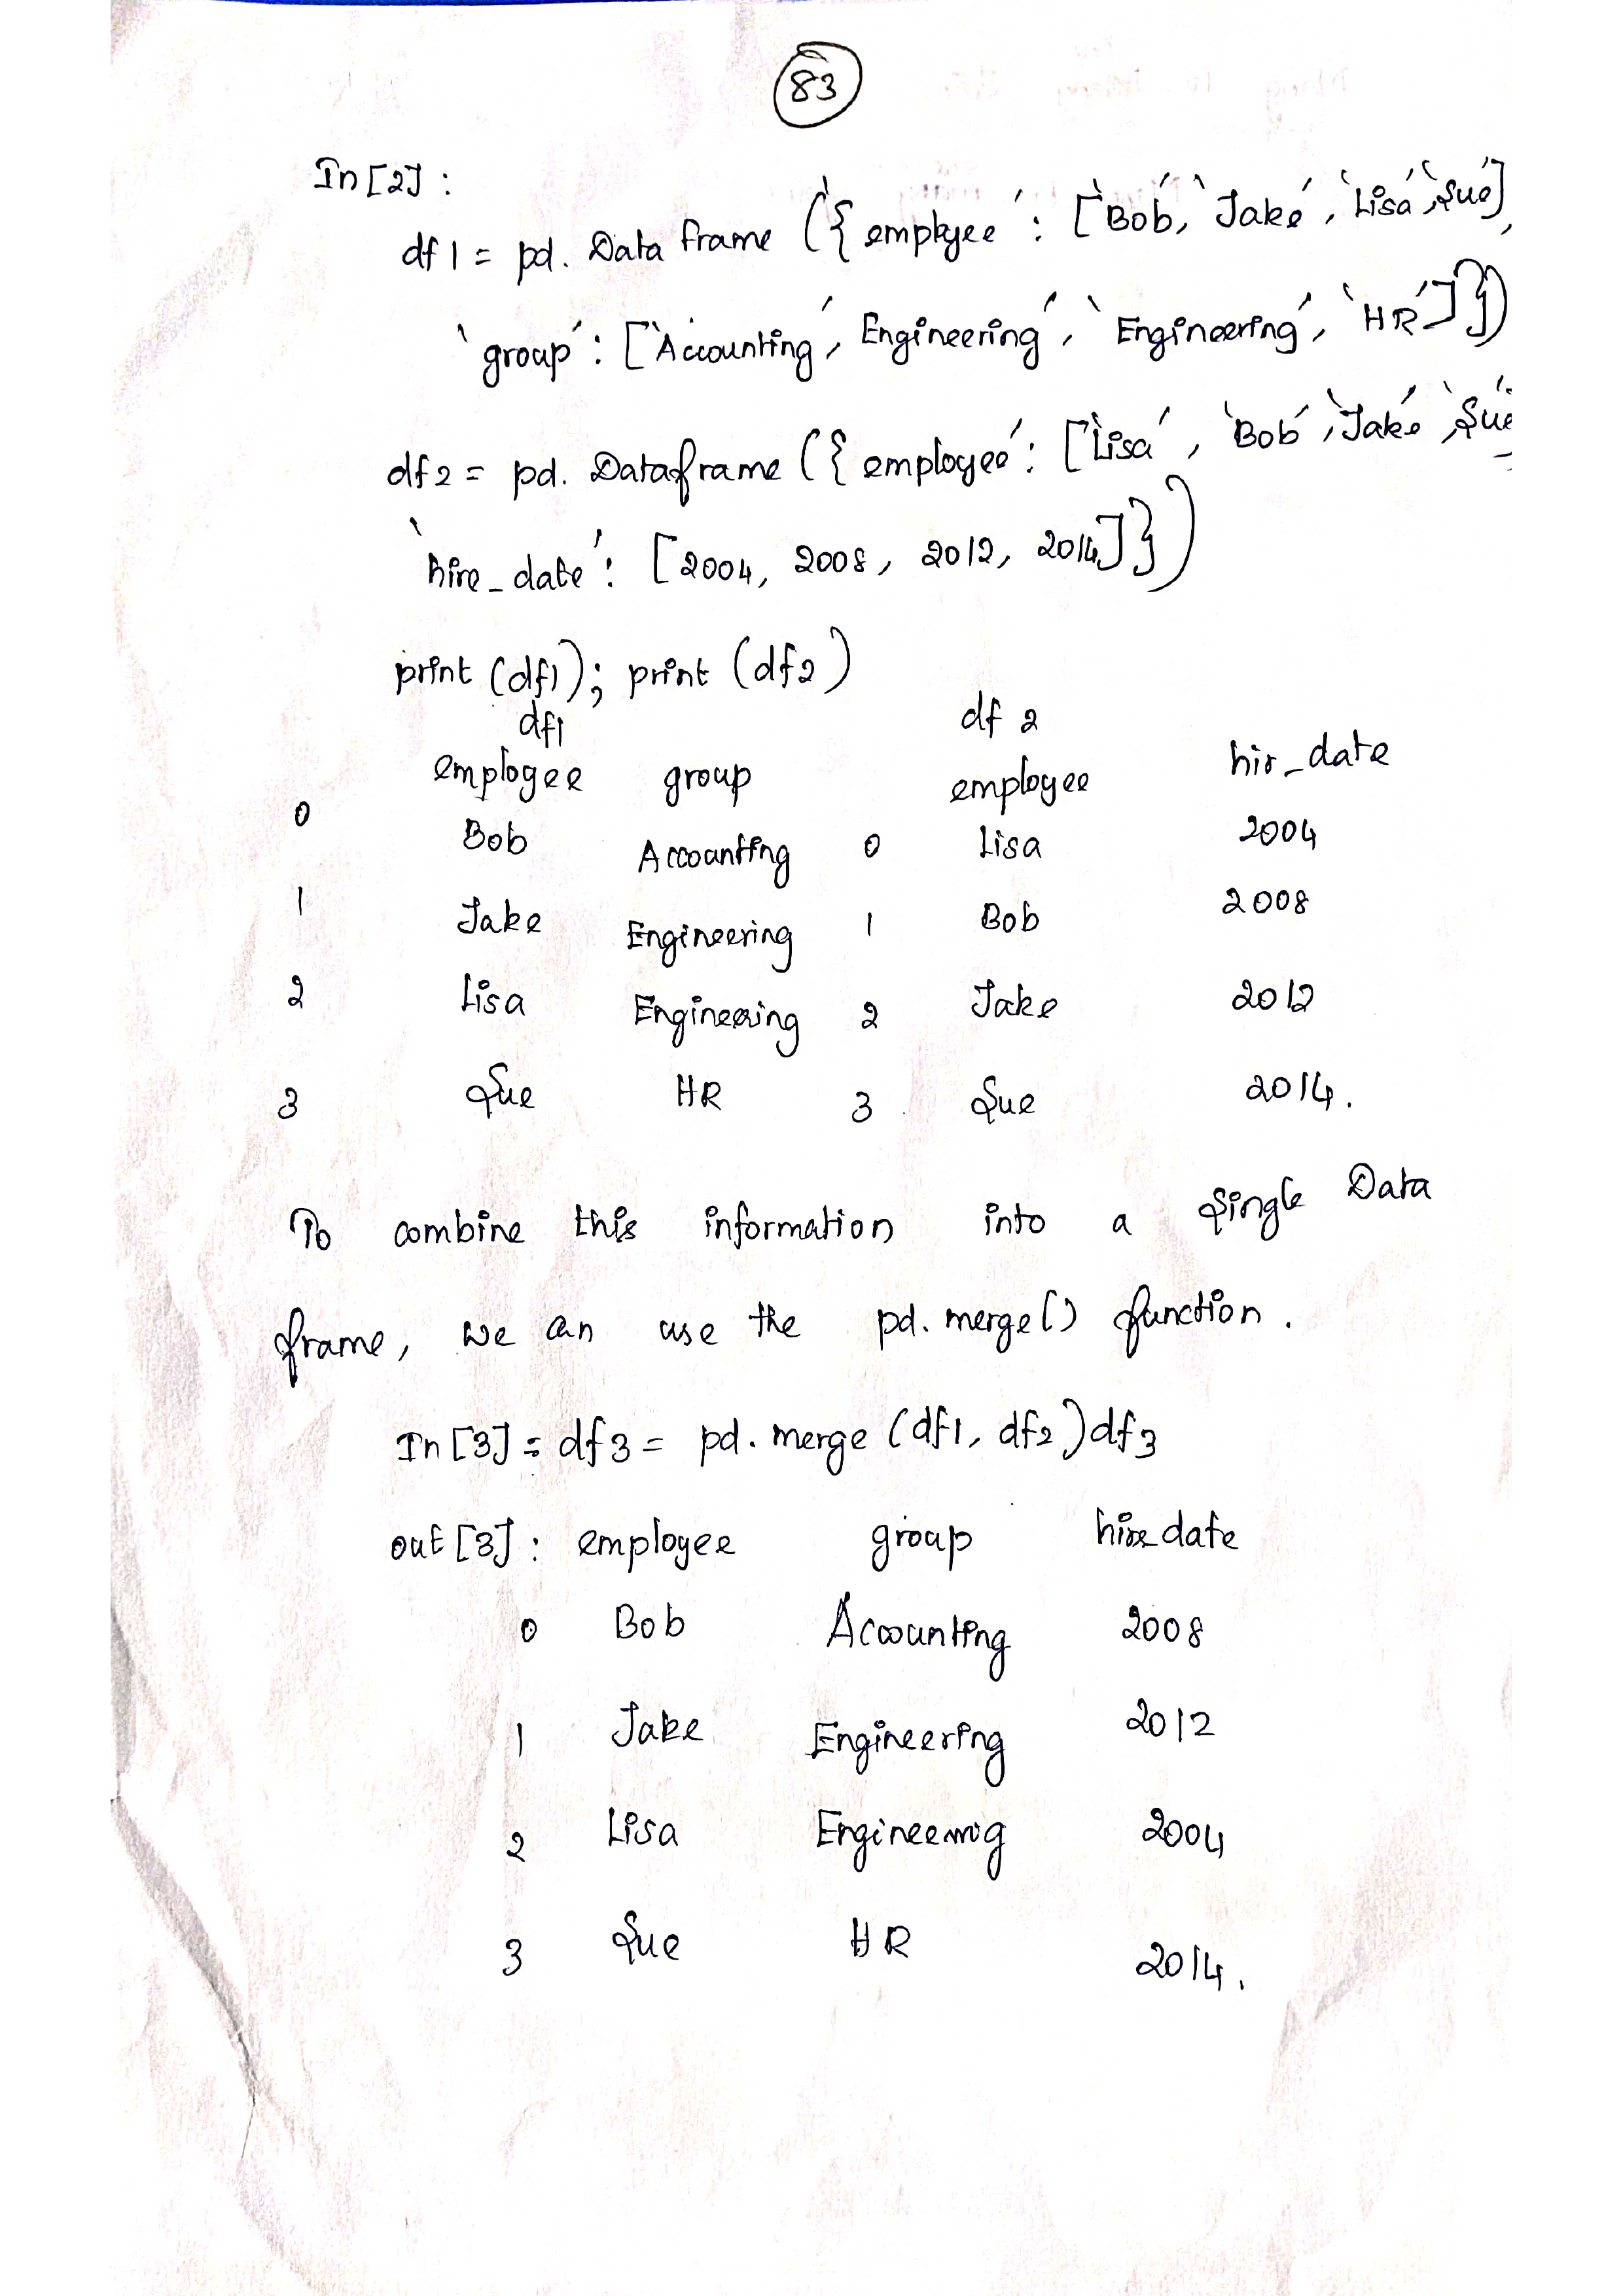 83
In [2] :
df1 = pd. Data frame ({ 'employee' : ['Bob', 'Jake', 'Lisa', 'Sue'],
'group' : ['Accounting', Engineering', 'Engineering', 'HR']})
df2 = pd. Dataframe ({ employee' : ['Lisa', 'Bob', 'Jake', 'Sue'
'hire_date' : [2004, 2008, 2012, 2014]})
print (df1); print (df2)
df1 df 2
employee group employee hir_date
0 Bob Accounting 0 Lisa 2004
1 Jake Engineering 1 Bob 2008
2 Lisa Engineering 2 Jake 2012
3 Sue HR 3 Sue 2014.
To combine this information into a Single Data
frame, we can use the pd. merge() function.
In [3] : df3 = pd. merge (df1, df2) df3
out [3] : employee group hire_date
0 Bob Accounting 2008
1 Jake Engineering 2012
2 Lisa Engineering 2004
3 Sue HR 2014.